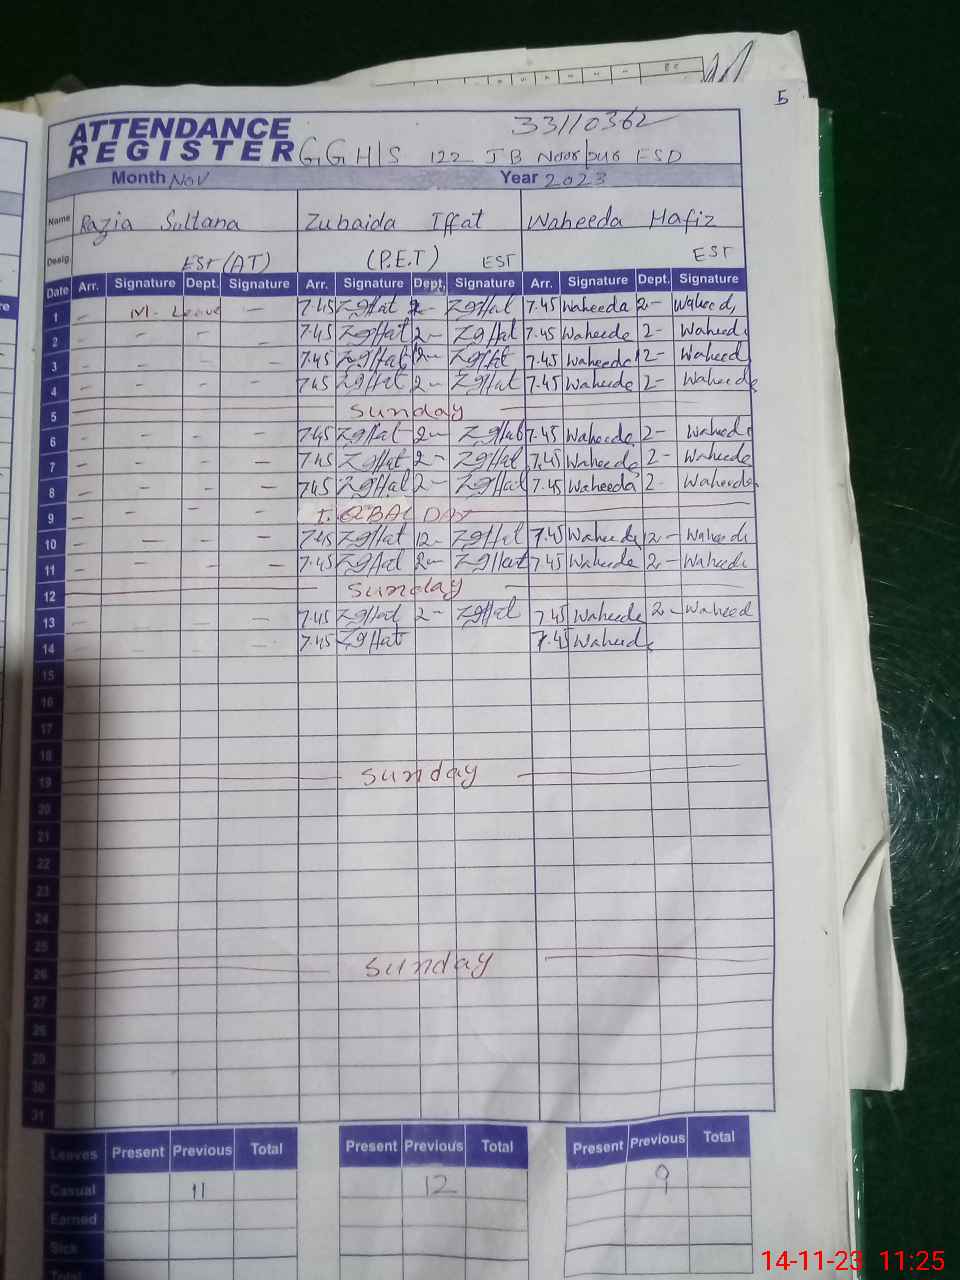 5
ATTENDANCE
REGISTER
33110362
GGH/S 122 JB Noorpur ESD
Month Nov Year 2023
Name Razia Sultana Zubaida Iffat Waheeda Hafiz
Desig. EST (AT) (P.E.T) EST EST
Date Arr. Signature Dept. Signature Arr. Signature Dept. Signature Arr. Signature Dept. Signature
1 - M. Leave - 7.45 2- 7.45 Waheeda 2- Waheed
2 - - - - 7.45 2- 7.45 Waheede 2- Waheed
3 - - - - 7.45 2- 7.45 Waheede 2- Waheed
4 - - - - 7.45 2- 7.45 Waheede 2- Waheede
5 Sunday
6 - - - - 7.45 2- 7.45 Waheede 2- Waheed
7 - - - - 7.45 2- 7.45 Waheede 2- Waheede
8 - - - - 7.45 2- 7.45 Waheeda 2- Waheede
9 - - - - IQBAL DAY
10 - - - - 7.45 12- 7.45 Waheede 2- Waheede
11 - - - - 7.45 2- 7.45 Waheede 2- Waheede
12 Sunday
13 - - - - 7.45 2- 7.45 Waheede 2- Waheed
14 - - - - 7.45 7.45 Waheed
15
16
17
18
19 Sunday
20
21
22
23
24
25
26 Sunday
27
28
29
30
31
Leaves Present Previous Total Present Previous Total Present Previous Total
Casual 11 12 9
Earned
Sick
Total
14-11-23 11:25